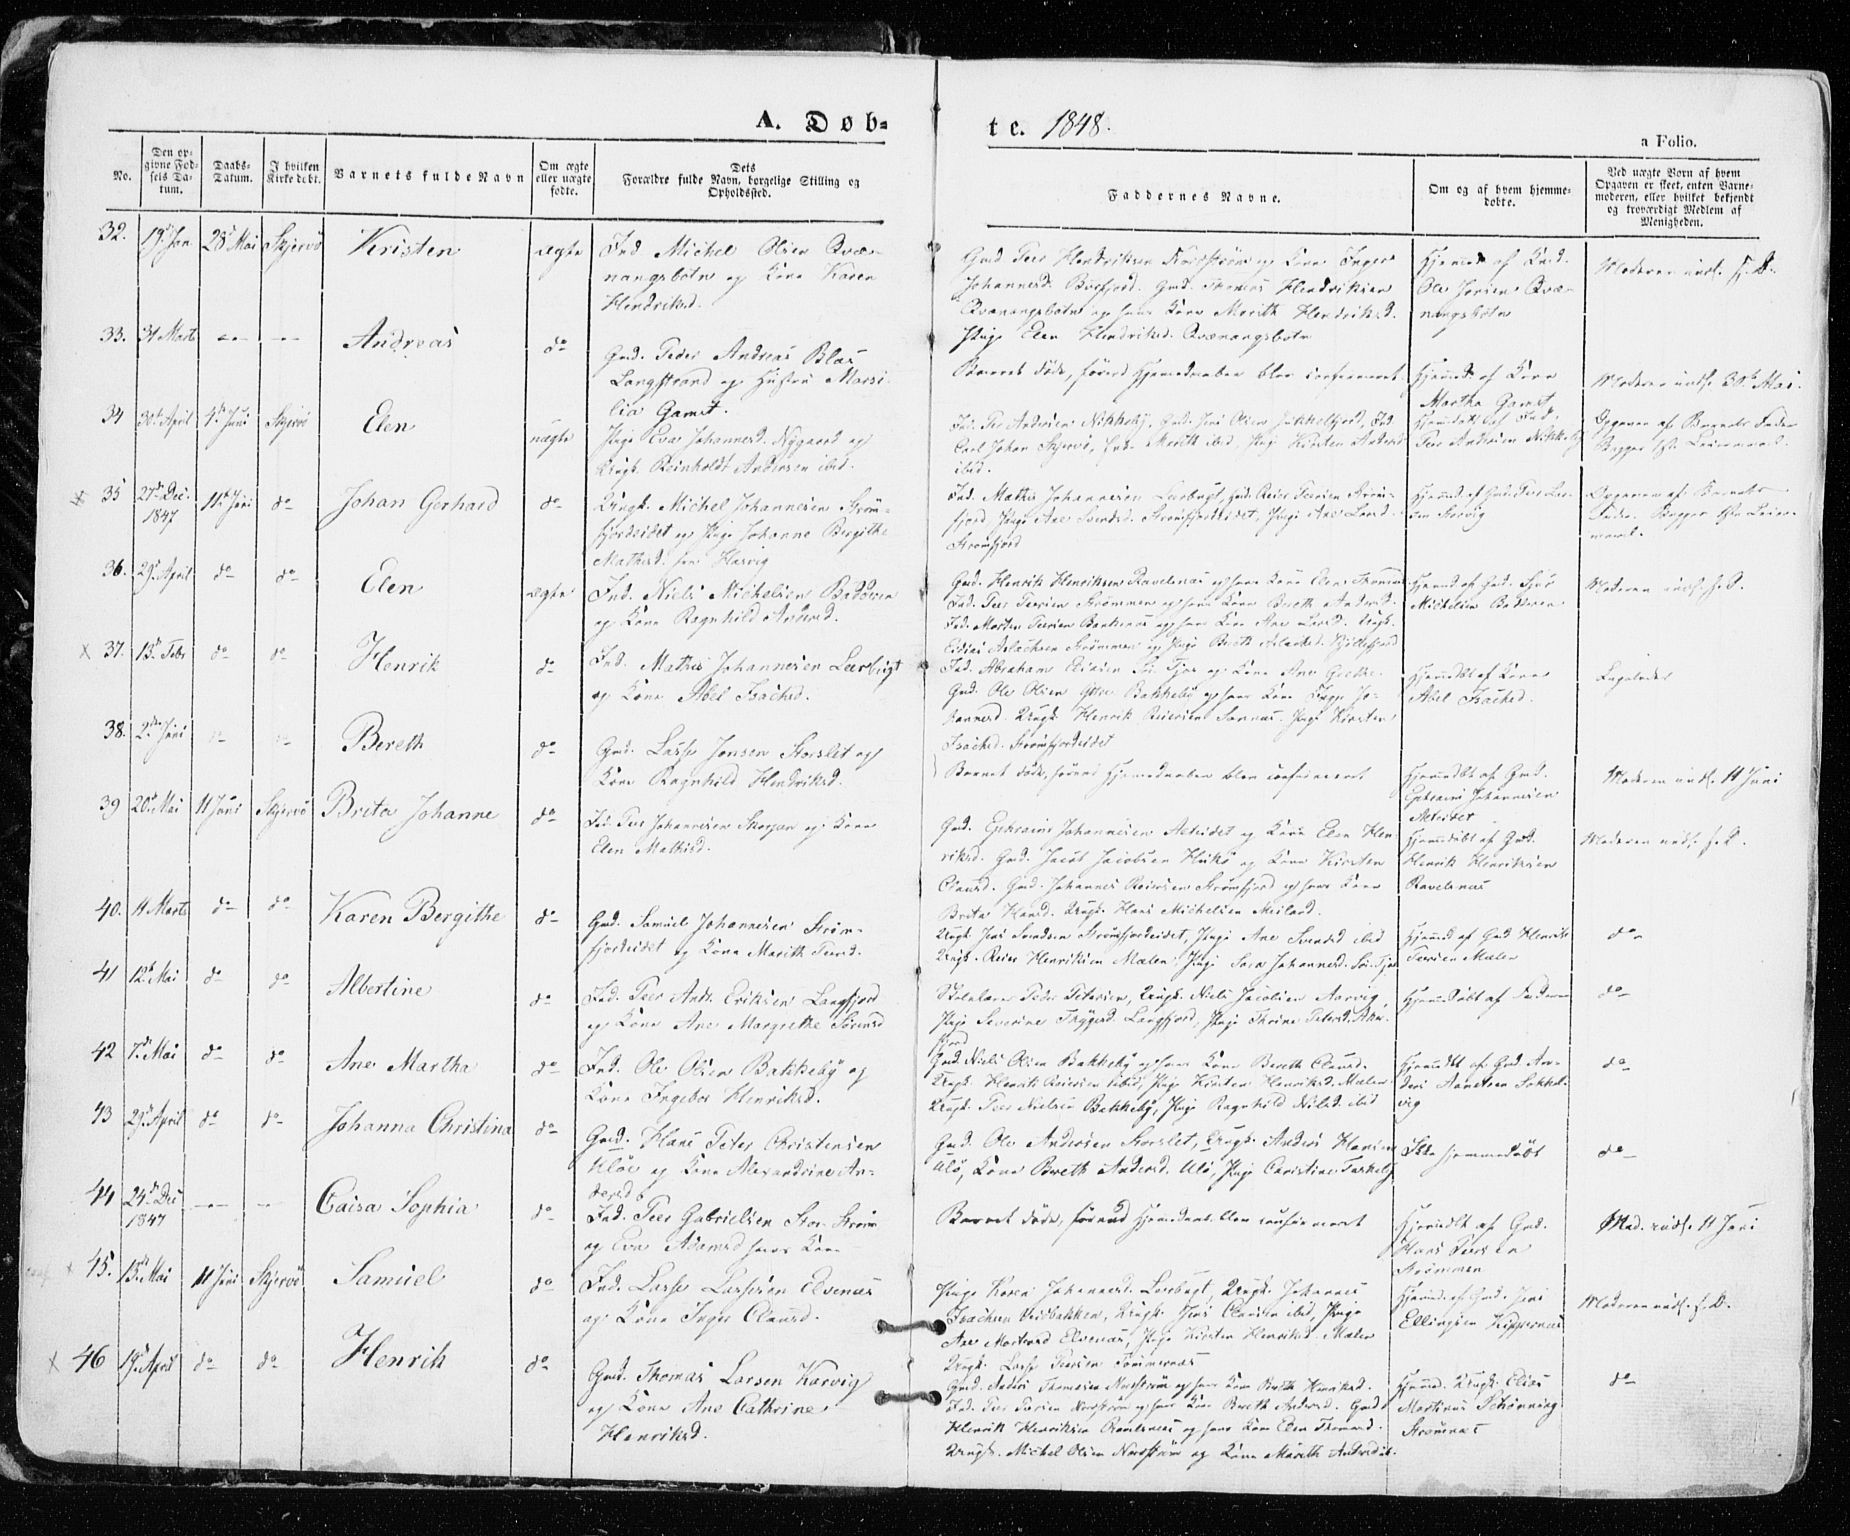 A. Døb-
te. 1848.
a Folio.
No.
Den opgivne Fødsels Datum.
Daabs-Datum.
I hvilken Kirke døbt.
Barnets fulde Navn
Om ægte eller uægte fødte.
Dets Forældre fulde Navn, borgelige Stilling og Opholdssted.
Faddernes Navne.
Om og af hvem hjemmedøbte.
Ved uægte Børn af hvem Opgaven er skeet, enten Barnemoderen, eller hvilket bekjendt og troværdigt Medlem af Menigheden.
32. 19 Jan 28 Mai Skjervö Kristen ægte Ind. Michel Olsen Qvæ-
nangsbotn og Kone Karen
Hendriksd.
Gmd Peer Hendriksen og Kone Inger
Johannesd. Burfjord. Gmd. Thomas Hendriksen
Qvænangsbotn og hans Kone Marith Hendriksd.
Pige Elen Hendriksd. Qvænangsbotn
Hjemd. af Ind.
Ole Jonsen Qvæ-
nangsbotn
Moderen inds. s. D.
33. 31 Marts Andreas do Gmd. Peder Andreas Blas
Langstrand og Hustru Marsi-
lia Gamst.
Barnet døde, förend Hjemmedaaben blev confirmeret
Hjemd. af Kone
Martha Gamst
Moderen inds. 30te Mai.
34 30te April 4de Juni Skjervö Elen uægte Pige Eva Johannesd. Nygaard og
Ungk. Reinholdt Andersen ibid.
Ind. Per Andersen Nikkeby, Gmd. Jens Olsen Jökkelfjord, Ind.
Carl Johan Skjervö, Marith ibid, Pige Kirsten Andersd
ibid.
Hjemdöbt af Ind.
Peer Andersen Nikkeby
Opgaven af Barnets Fader
Begges 1ste Leiermaal.
35 27de Dec. 1847 11te Juni do Johan Gerhard do Ungk. Michel Johannesen Ström-
fjordeidet og Pige Johanne Bergithe
Mathisd.
Ind. Mathis Johannesen Leerbugt, Gmd. Reier Peersen Ström-
fjord Pige Ane Svendsd. Strömfjordeidet, Pige Ane Larsd.
Strömfjord
Hjemd. af Gmd. Peer Lar-
sen
Opgaven af Barnets
Fader. Begges 1ste Leier-
maal.
36. 29 April do do Elen ægte Ind. Niels Michelsen Badderen
og Kone Ragnhild Andersd.
Gmd. Henrik Henriksen Ravelsnæs og hans Kone Elen Thomasd.
Ind. Peer Peersen Strömmen og hans Kone Bereth Andersd.
Ind. Morten Peersen og hans Kone Ane Larsd. Ungk.
Elias Aslachsen Strömmen og Pige Bereth
Hjemd. af Gmd.
Michelsen Badderen
Moderen inds. s. D.
37. 13 Febr do do Henrik do Ind. Mathis Johannesen Leerbugt
og Kone Abel Isachsd.
Ind. Abraham Eliasen og Kone Ane Grethe.
Gmd. Ole Olsen Bakkeby og hans Kone Inger Jo-
hannesd. Ungk. Henrik Reiersen Sannæs. Pige Kirsten
Isachsd. Strömfjordeidet
Hjemdöbt af Kone
Abel Isachsd.
38. 2den Juni Bereth do Gmd. Lasse Jensen Storslet og
Kone Ragnhild Hendriksd.
Barnet döde, förend Hjemmedaaben blev confirmeret
Hjemdöbt af Gmd.
Ephraim Johannesen
Moderen inds. 11 Juni
39 20 Mai 11 Juni Skjervö Brita Johanne do Ind. Peer Johannesen og Kone
Elen Mathisd.
Gmd. Ephraim Johannesen og Kone Elen Hen-
riksd. Gmd. Jacob Jacobsen og Kone Kirsten
Clausd. Gmd. Johannes Reiersen Strömfjord og hans Kone
Brita Hansd. Ungk. Hans Michelsen Meiland.
Hjemdöbt af Gmd.
Henrik Henriksen
Ravelsnæs
Moderen inds. s. D.
40. 11 Marts do do Karen Bergithe do Gmd. Samuel Johannesen Ström-
fjordeidet og Kone Marith
Ungk. Jens Svendsen Strömfjordeidet, Pige Ane Svendsd ibid
Ungk. Reier Henriksen Maelen, Pige Sara Johannesd.
Hjemd af Gmd Henrik
Peersen Maelen
do
41 12te Mai do do Albertine do Ind. Peer Andr. Eriksen Langfjord
og Kone Ane Margrethe Sörensd
Skolelærer Peder Petersen, Ungk. Niels Jacobsen Aarvig,
Pige Severine Langfjord, Pige Thrine Petersd.
Hjemdöbt af Faderen
do
42 7de Mai do do Ane Martha do Ind. Ole Olsen Bakkeby og
Kone Ingebor Henriksd.
Gmd. Niels Olsen Bakkeby og hans Kone Bereth Clausd.
Ungk. Henrik Reiersen ibid, Pige Kirsten Henriksd. Maelen
Ungk. Peer Nielsen Bakkeby, Pige Ragnhild Nilsd. ibid
Hjemdöbt af Gmd An-
ders
do
43 29 April do do Johanna Christina do Gmd. Hans Peter Christensen
Ulöe og Kone Alexandrine An-
dersd
Gmd. Ole Andersen Storslet, Ungk. Anders Hansen
Ulö, Kone Bereth Andersd. Ulö, Pige Christine
Ikke hjemmedöbt
do
44 24de Dec 1847 Caisa Sophia do Ind. Peer Gabrielsen Stor-Ström
og Eva Adamsd hans Kone
Barnet döde, förend Hjemmedaaben blev confirmeret
Hjemdöbt af Gmd.
Hans
Strömmen
Mod. inds. 11 Juni
45. 13 Mai 11 Juni Skjervö Samuel do Ind. Lasse Lassesen Elvenæs
og Kone Inger Clausd.
Pige Karen Johannesd. Leerbugt, Ungk. Johannes
Isachsen, Ungk. Jens Clausen ibid, Pige
Ane Mortensd Elvenæs, Pige Kirsten Henriksd. Maelen
Ungk. Lasse Peersen
Hjemd. af Gmd. Jens
Ellingsen
Moderen inds. s. D.
46 19 April do do Henrik do Gmd. Thomas Larsen Karvig
og Kone Ane Cathrine
Henriksd.
Gmd. Anders Thomesen og hans Kone Bereth Henriksd.
Ind. Peer Peersen og hans Kone Bereth Andersd. Gmd
Henrik Henriksen Ravelsnæs og hans Kone Elen Thomasd.
Ungk. Michel Olsen og Kone Mareth Andersd ibid.
Hjemd. Ungk. Elias
Martinus Schönning
Strömnæs
do